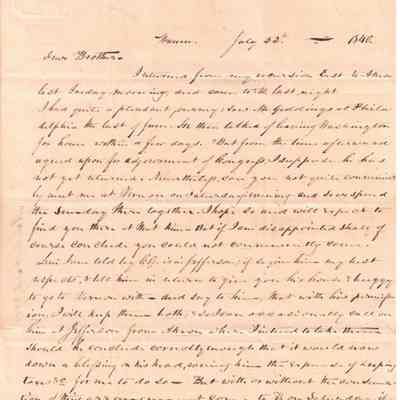 Warren July 22d — 1840
Dear Brother
I returned from my excursion East to Akron
last Sunday morning, and came on the last night
I had quite a pleasant journey. Saw Mr Giddings at Phila
delphia the last of June. He then talked of leaving Washington
for home within a few days. But from the time afterward
agreed upon for adjournment of Congress, I suppose he has
not yet returned. Nevertheless, can you not quite convenien
to meet me at Vernon on Saturday evening and so we spend
the Sunday there together. I hope so and will expect to
find you there at that time. But if I am disappointed shall of
course conclude you could not conveniently come.
Levi
last week is in Jefferson, if so give him my best
respects, & tell him in return to give you his horse & buggy
to go to Vernon with — and say to him, that with his permiss
ion, I will keep them both, & return occasionally call on
him at Jefferson from Akron where I intend to take them
Should he conclude
down a blessing on his head, saving him the expense of keeping
for me to do so — But with or without the
tion of this arrangement come to Vernon Saturday if